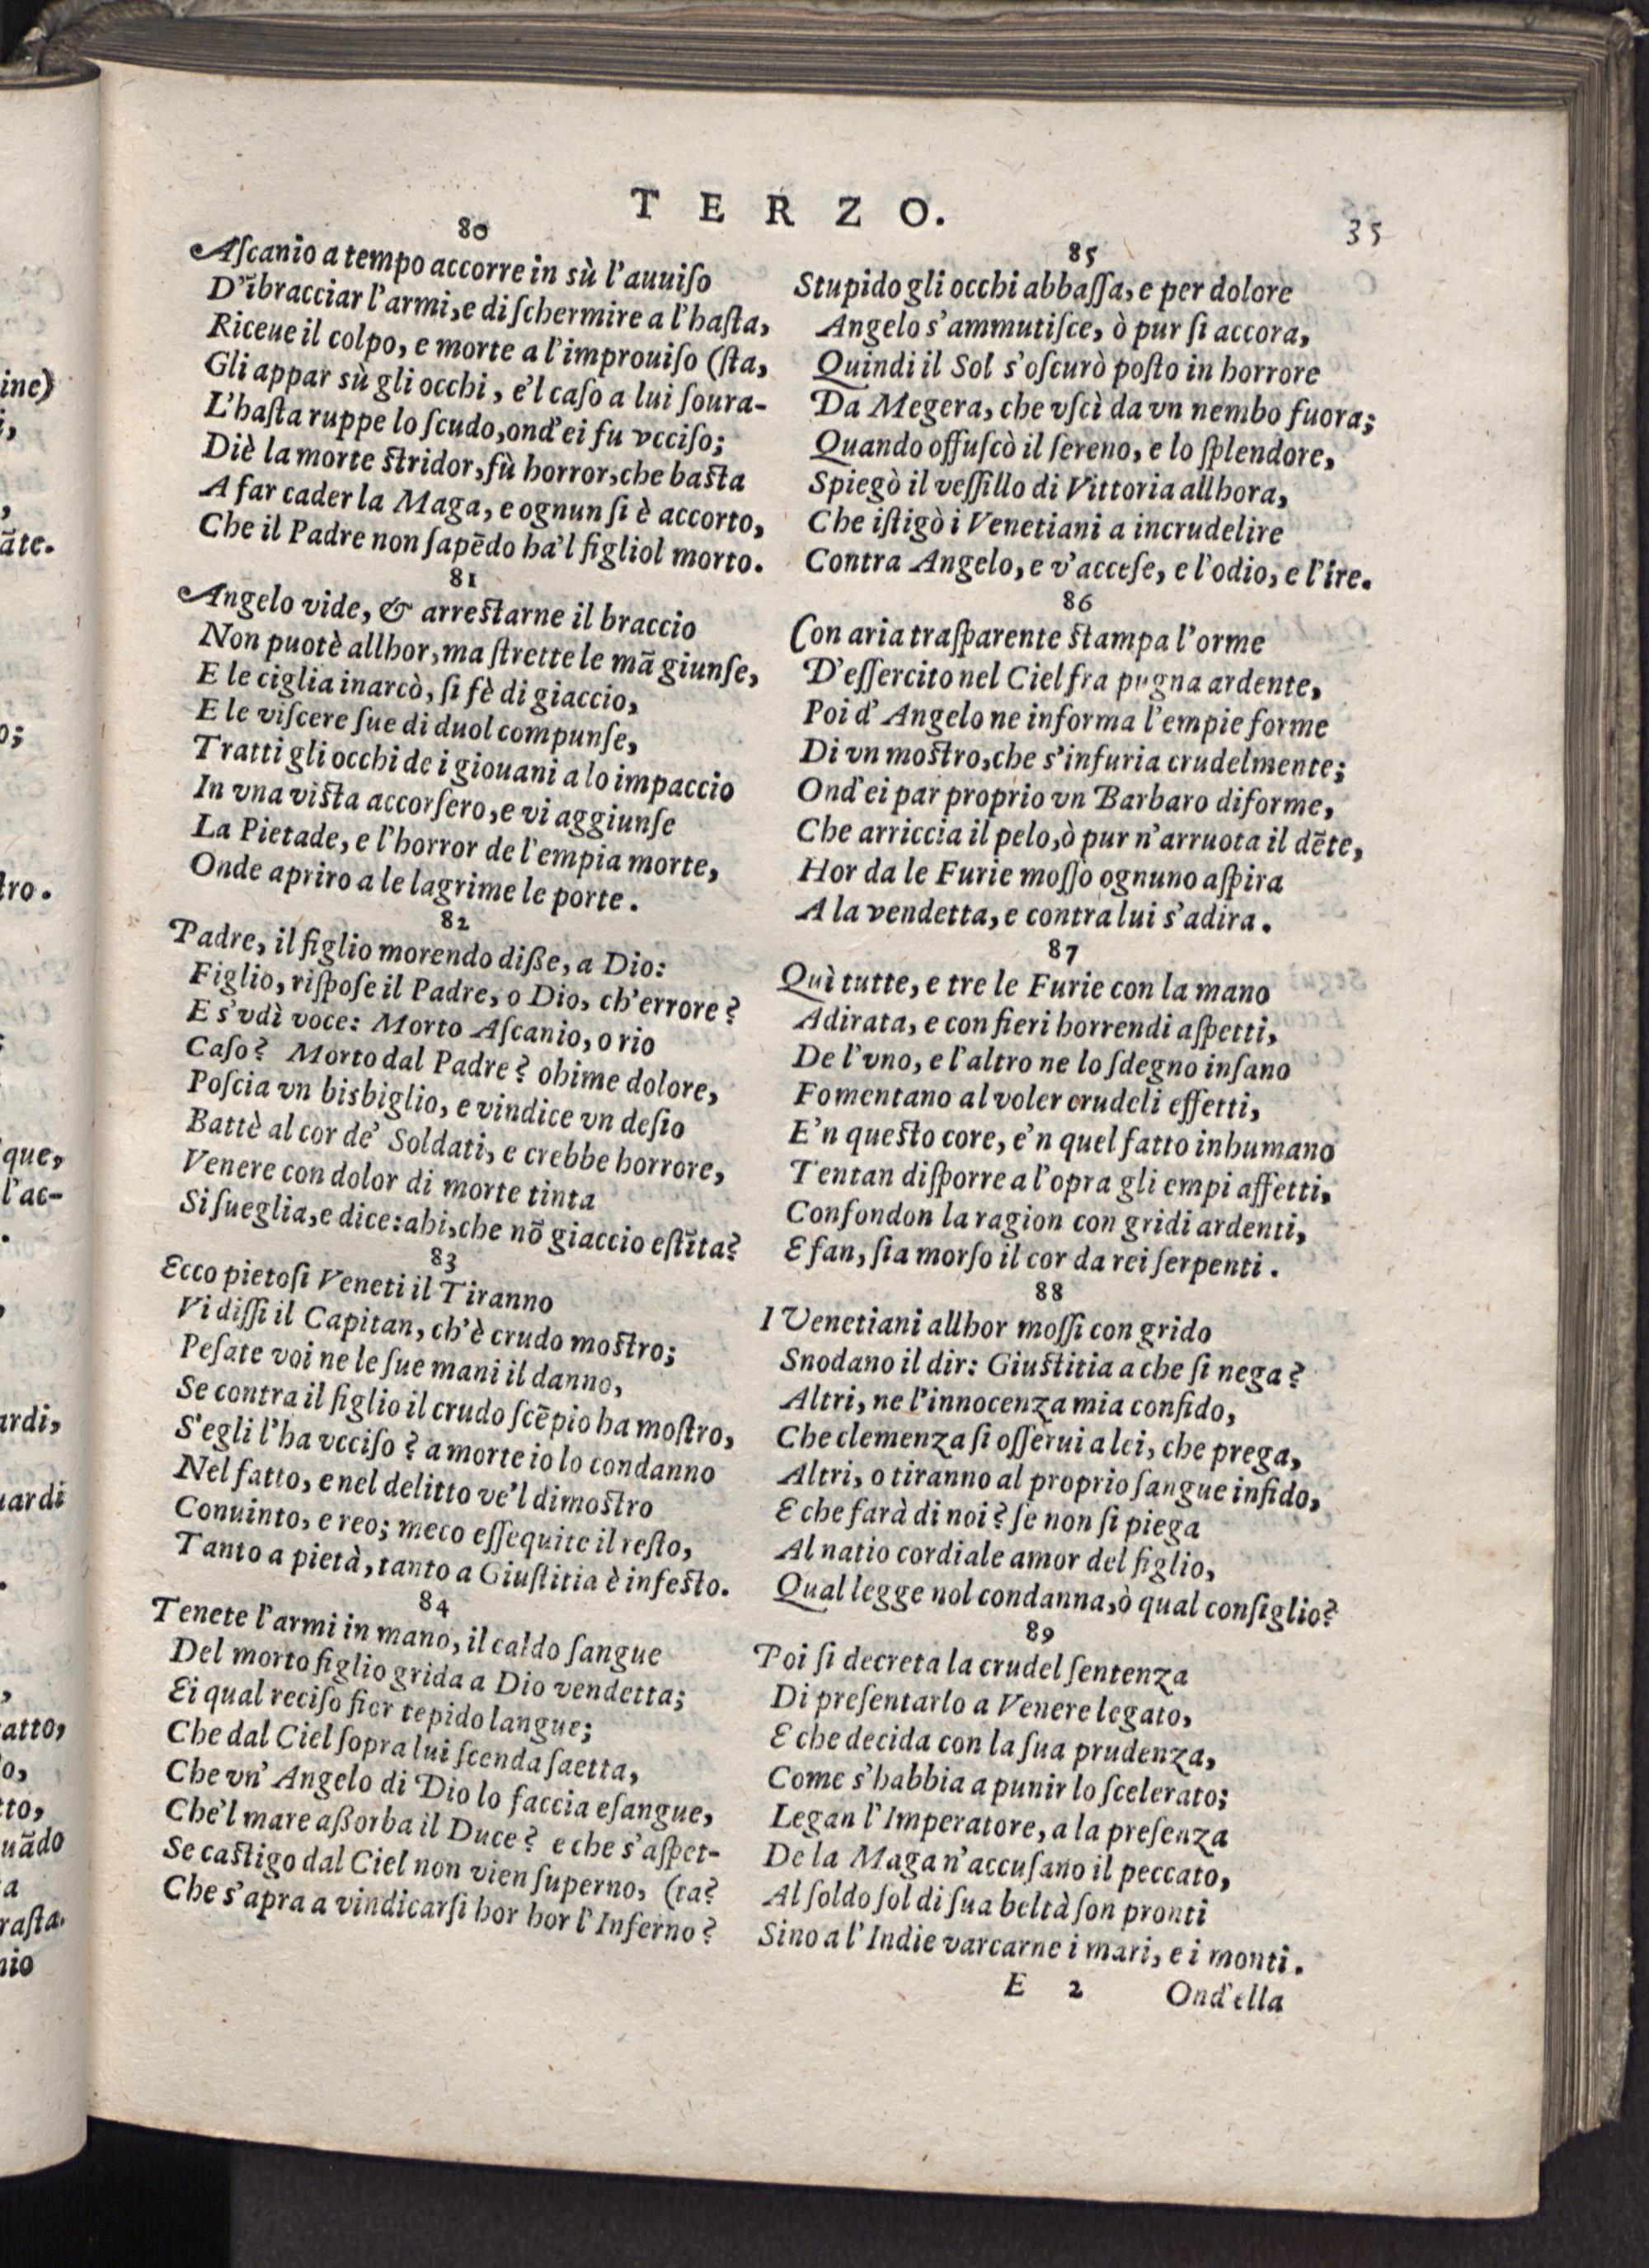 TERZO.
35
80
Aſcanio a tempo accorre in sù l'auuiſo
D'ĩbracciar l'armi, e di ſchermire a l'haſta,
Riceue il colpo, e morte a l'improuiſo (ſta,
Gli appar sù gli occhi, e'l caſo a lui ſoura-
L'haſta ruppe lo ſcudo, ond'ei fu vcciſo;
Diè la morte stridor, fù horror, che basta
A far cader la Maga, e ognun ſi è accorto,
Che il Padre non ſapẽdo ha'l figliol morto.
81
Angelo vide, & arrestarne il braccio
Non puotè allhor, ma ſtrette le mã giunſe,
E le ciglia inarcò, ſi fè di giaccio,
E le viſcere ſue di duol compunſe,
Tratti gli occhi de i giouani a lo impaccio
In vna vista accorſero, e vi aggiunſe
La Pietade, e l'horror de l'empia morte,
Onde apriro a le lagrime le porte.
82
Padre, il figlio morendo diße, a Dio:
Figlio, riſpoſe il Padre, o Dio, ch'errore?
E s'vdì voce: Morto Aſcanio, o rio
Caſo? Morto dal Padre? ohime dolore,
Poſcia vn bisbiglio, e vindice vn deſio
Battè al cor de' Soldati, e crebbe horrore,
Venere con dolor di morte tinta
Si ſueglia, e dice: ahi, che nõ giaccio eſtĩta?
83
Ecco pietoſi Veneti il Tiranno
Vi diſſi il Capitan, ch'è crudo mostro;
Peſate voi ne le ſue mani il danno,
Se contra il figlio il crudo ſcẽpio ha moſtro,
S'egli l'ha vcciſo? a morte io lo condanno
Nel fatto, e nel delitto ve'l dimostro
Conuinto, e reo; meco eſſequite il reſto,
Tanto a pietà, tanto a Giuſtitia è infesto.
84
Tenete l'armi in mano, il caldo ſangue
Del morto figlio grida a Dio vendetta;
Ei qual reciſo fior tepido langue;
Che dal Ciel ſopra lui ſcenda ſaetta,
Che vn' Angelo di Dio lo faccia eſangue,
Che'l mare aßorba il Duce? e che s'aſpet-
Se castigo dal Ciel non vien ſuperno, (ta?
Che s'apra a vindicarſi hor hor l'Inferno?
85
Stupido gli occhi abbaſſa, e per dolore
Angelo s'ammutiſce, ò pur ſi accora,
Quindi il Sol s'oſcurò poſto in horrore
Da Megera, che vſcì da vn nembo fuora;
Quando offuſcò il ſereno, e lo ſplendore,
Spiegò il veſſillo di Vittoria allhora,
Che iſtigò i Venetiani a incrudelire
Contra Angelo, e v'acceſe, e l'odio, e l'ire.
86
Con aria traſparente stampa l'orme
D'eſſercito nel Ciel fra pugna ardente,
Poi d'Angelo ne informa l'empie forme
Di vn mostro, che s'infuria crudelmente;
Ond'ei par proprio vn Barbaro diforme,
Che arriccia il pelo, ò pur n'arruota il dẽte,
Hor da le Furie moſſo ognuno aſpira
A la vendetta, e contra lui s'adira.
87
Quì tutte, e tre le Furie con la mano
Adirata, e con fieri horrendi aſpetti,
De l'vno, e l'altro ne lo ſdegno inſano
Fomentano al voler crudeli effetti,
E'n questo core, e'n quel fatto inhumano
Tentan diſporre a l'opra gli empi affetti,
Confondon la ragion con gridi ardenti,
E fan, ſia morſo il cor da rei ſerpenti.
88
I Venetiani allhor moſſi con grido
Snodano il dir: Giustitia a che ſi nega?
Altri, ne l'innocenza mia confido,
Che clemenza ſi oſſerui a lei, che prega,
Altri, o tiranno al proprio ſangue infido,
E che farà di noi? ſe non ſi piega
Al natio cordiale amor del figlio,
Qual legge nol condanna, ò qual conſiglio?
89
Poi ſi decreta la crudel ſentenza
Di preſentarlo a Venere legato,
E che decida con la ſua prudenza,
Come s'habbia a punir lo ſcelerato;
Legan l'Imperatore, a la preſenza
De la Maga n'accuſano il peccato,
Al ſoldo ſol di ſua beltà ſon pronti
Sino a l'Indie varcarne i mari, e i monti.
E 2 Ond'ella
ine)
i,
,
ãte.
o;
dro.
que,
l'ac-
ardi,
uardi
fatto,
o,
tto,
uãdo
ta
raſta.
nio